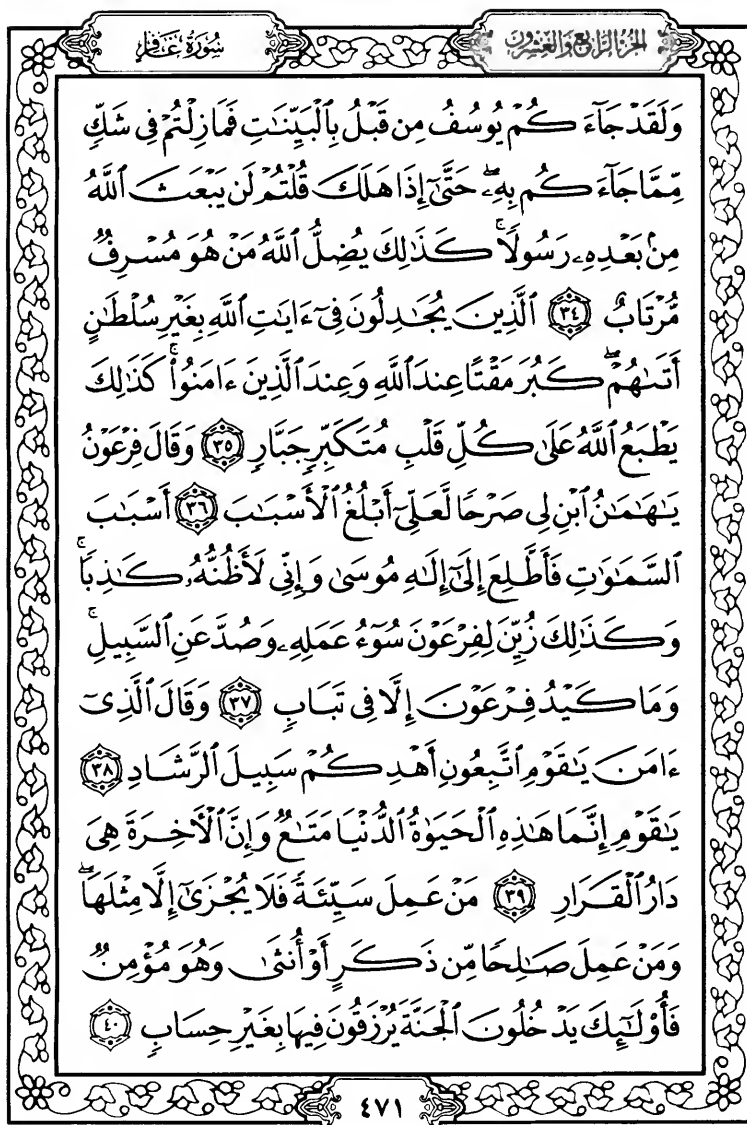 الجزء الرابع والعشرون
سورة غافر
وَلَقَدْ جَآءَكُمْ يُوسُفُ مِن قَبْلُ بِٱلْبَيِّنَٰتِ فَمَا زِلْتُمْ فِى شَكٍّ
مِّمَّا جَآءَكُم بِهِۦۖ حَتَّىٰٓ إِذَا هَلَكَ قُلْتُمْ لَن يَبْعَثَ ٱللَّهُ
مِنۢ بَعْدِهِۦ رَسُولًاۚ كَذَٰلِكَ يُضِلُّ ٱللَّهُ مَنْ هُوَ مُسْرِفٌ
مُّرْتَابٌ ٣٤ ٱلَّذِينَ يُجَٰدِلُونَ فِىٓ ءَايَٰتِ ٱللَّهِ بِغَيْرِ سُلْطَٰنٍ
أَتَىٰهُمْۖ كَبُرَ مَقْتًا عِندَ ٱللَّهِ وَعِندَ ٱلَّذِينَ ءَامَنُوا۟ۚ كَذَٰلِكَ
يَطْبَعُ ٱللَّهُ عَلَىٰ كُلِّ قَلْبِ مُتَكَبِّرٍ جَبَّارٍ ٣٥ وَقَالَ فِرْعَوْنُ
يَٰهَٰمَٰنُ ٱبْنِ لِى صَرْحًا لَّعَلِّىٓ أَبْلُغُ ٱلْأَسْبَٰبَ ٣٦ أَسْبَٰبَ
ٱلسَّمَٰوَٰتِ فَأَطَّلِعَ إِلَىٰٓ إِلَٰهِ مُوسَىٰ وَإِنِّى لَأَظُنُّهُۥ كَٰذِبًاۚ
وَكَذَٰلِكَ زُيِّنَ لِفِرْعَوْنَ سُوٓءُ عَمَلِهِۦ وَصُدَّ عَنِ ٱلسَّبِيلِۚ
وَمَا كَيْدُ فِرْعَوْنَ إِلَّا فِى تَبَابٍ ٣٧ وَقَالَ ٱلَّذِىٓ
ءَامَنَ يَٰقَوْمِ ٱتَّبِعُونِ أَهْدِكُمْ سَبِيلَ ٱلرَّشَادِ ٣٨
يَٰقَوْمِ إِنَّمَا هَٰذِهِ ٱلْحَيَوٰةُ ٱلدُّنْيَا مَتَٰعٌ وَإِنَّ ٱلْأَخِرَةَ هِىَ
دَارُ ٱلْقَرَارِ ٣٩ مَنْ عَمِلَ سَيِّئَةً فَلَا يُجْزَىٰٓ إِلَّا مِثْلَهَاۖ
وَمَنْ عَمِلَ صَٰلِحًا مِّن ذَكَرٍ أَوْ أُنثَىٰ وَهُوَ مُؤْمِنٌ
فَأُو۟لَٰٓئِكَ يَدْخُلُونَ ٱلْجَنَّةَ يُرْزَقُونَ فِيهَا بِغَيْرِ حِسَابٍ ٤٠
٤٧١